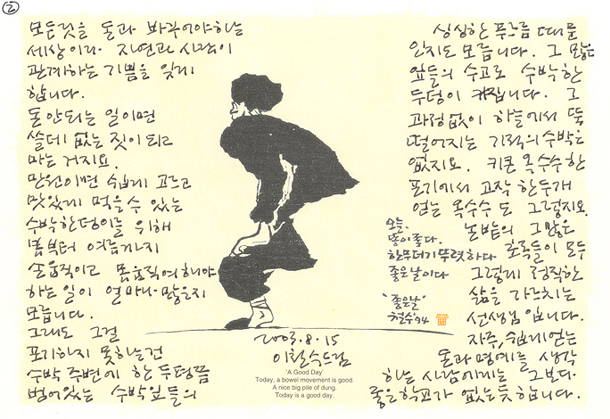 ②
모든것을 돈과 바꾸어야하는
세상이라 자연과 사람이
관계하는 기쁨을 잊게
합니다.
돈 안되는 일이면
쓸데 없는 짓이 되고
마는 거지요.
만원이면 쉽게 고르고
맛있게 먹을수 있는
수박한덩이를 위해
봄부터 여름까지
손움직이고 몸움직여 해야
하는 일이 얼마나 많은지
모릅니다.
그래도 그걸
포기하지 못하는건
수박 주변에 한두평쯤
벋어있는 수박잎들의
싱싱한 푸르름 때문
인지도 모릅니다. 그 많은
잎들의 수고로 수박 한
두덩이 커집니다. 그
과정없이 하늘에서 뚝
떨어지는 기적의 수박은
없지요. 키큰 옥수수 한
포기에서 고작 한두개
얻는 옥수수도 그렇지요.
논밭의 그 많은
곡식들이 모두
그렇게 정직한
삶을 가르치는
선생님입니다.
자주, 쉽게 얻는
돈과 명예를 생각
하는 사람에게는 그보다
좋은 학교가 없는듯 합니다.
오늘.
똥이 좋다.
한무더기 뚜렷하다
좋은날이다
"좋은날"
철수 '94
2003.8.15
이철수드림
'A Good Day'
Today, a bowel movement is good.
A nice big pile of dung.
Today is a good day.